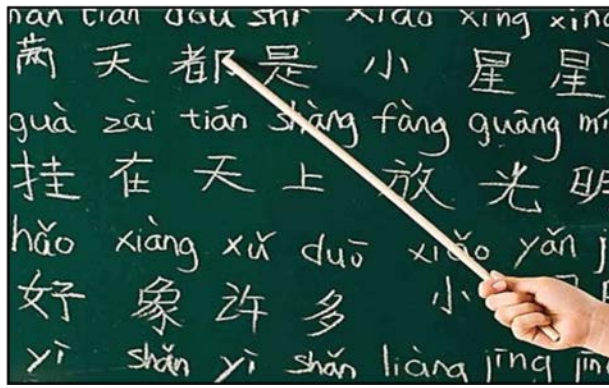 tian dou shi xiao xing xing
天 都 是 小 星 星
guà zài tiān shàng fàng guāng
挂 在 天 上 放 光 明
hǎo xiàng xǔ duō xiǎo yǎn
好 象 许 多 小
yì shǎn yì shǎn liàng jīng